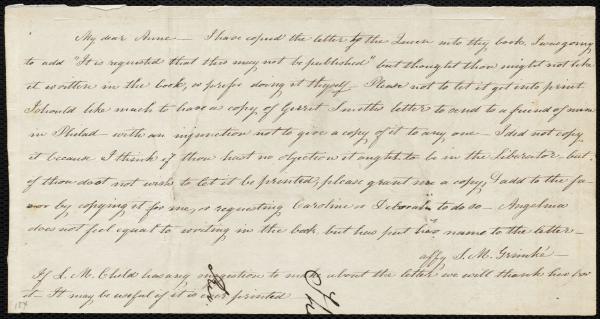 My dear Anne — I have copied the letter to the Queen into thy book. I was going
to add "It is requested that this may not be published" but thought thou might not like
it written in the book, so prefer doing it thyself — Please not to let it get into print
I should like much to have a copy of Gerrit Smith's letter to send to a friend of mine
in Philad — with an injunction not to give a copy of it to any one — I did not copy
it because I think if thou hast no objection it ought to be in the Liberator, but
if thou dost not wish to let it be printed, please grant me a copy, & add to the fa-
vor by copying it for me, or requesting Caroline or Deborah to do so — Angelina
does not feel equal to writing in the book but has put her name to the letter —
affy S. M. Grimké —
If L. M. Child has any to make about the letter we will thank her for
it — It may be useful if it is ever printed
184